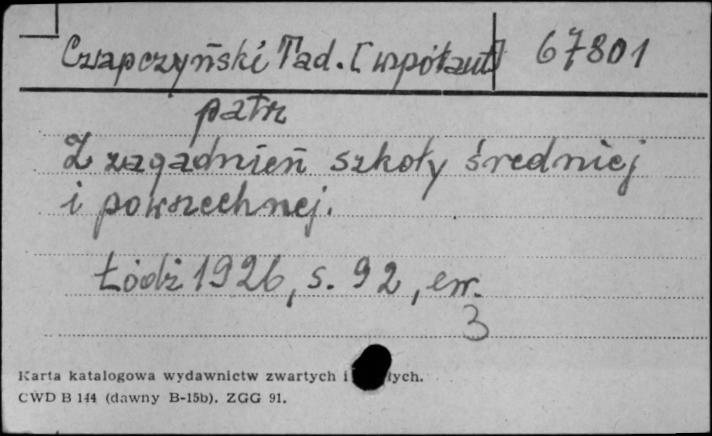 Czapczyński Tad. [współaut] 67801
patrz
Z zagadnień szkoły średniej
i powszechnej.
Łódź 1926, s. 92, err.
3
Karta katalogowa wydawnictw zwartych i łych.
CWD B 144 (dawny B-15b). ZGG 91.